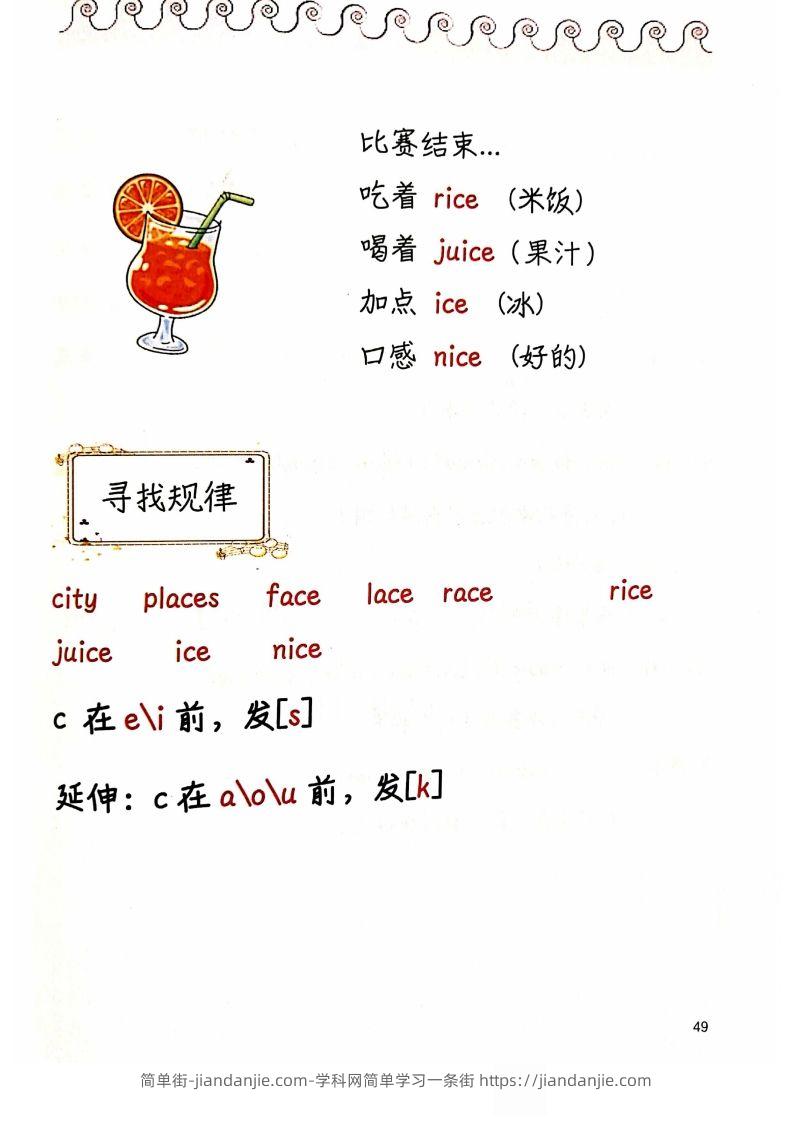 比赛结束...
吃着 rice （米饭）
喝着 juice（果汁）
加点 ice （冰）
口感 nice （好的）
寻找规律
city places face lace race rice
juice ice nice
c 在 e\i 前，发[s]
延伸：c 在 a\o\u 前，发[k]
49
简单街-jiandanjie.com-学科网简单学习一条街 https://jiandanjie.com